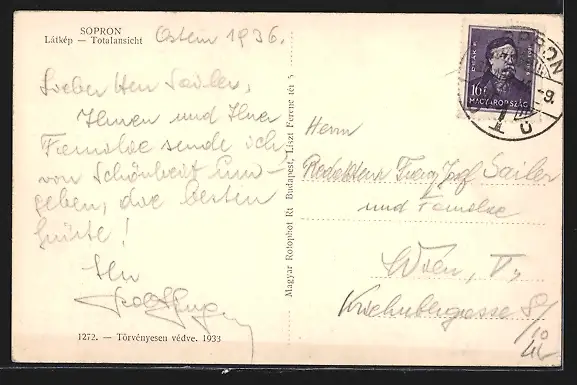 SOPRON
Látkép — Totalansicht
Ostern 1936.
Lieber Herr Sailer,
Ihnen und Ihrer
Familie sende ich
von Schönheit um-
geben, die besten
Grüße!
Ihr
1272. — Törvényesen védve. 1933
Magyar Rotophot Rt Budapest, Liszt Ferenc tér 5
DEÁK F.
16 f
MAGYARORSZÁG
Herrn
Redakteur Franz Josef Sailer
und Familie
Wien, V.,
8/
10/